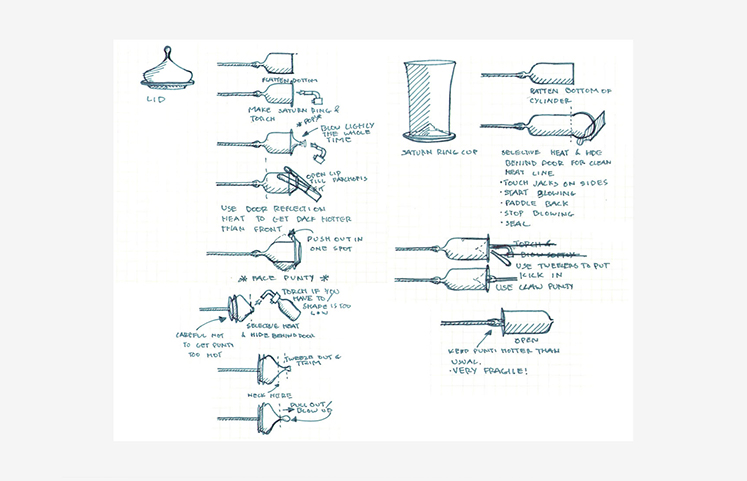 LID
FLATTEN BOTTOM
MAKE SATURN RING &
TORCH
*POP*
BLOW LIGHTLY
THE WHOLE
TIME
OPEN LIP
TILL
USE DOOR REFLECTION
HEAT TO GET BACK HOTTER
THAN FRONT
PUSH OUT IN
ONE SPOT
* FACE PUNTY *
TORCH IF YOU
HAVE TO/
SHAPE IS TOO
LOW
SELECTIVE HEAT
& HIDE BEHIND DOOR
CAREFUL NOT
TO GET PUNTI
TOO HOT
TWEEZE OUT &
TRIM
NECK HERE
PULL OUT/
BLOW UP
SATURN RING CUP
FLATTEN BOTTOM OF
CYLINDER
SELECTIVE HEAT & HIDE
BEHIND DOOR FOR CLEAN
HEAT LINE
• TOUCH JACKS ON SIDES
• START BLOWING
• PADDLE BACK
• STOP BLOWING
• SEAL
TORCH &
BLOW SOFTLY
USE TWEEZERS TO PUT
KICK IN
USE CLAW PUNTY
OPEN
KEEP PUNTI HOTTER THAN
USUAL.
• VERY FRAGILE!